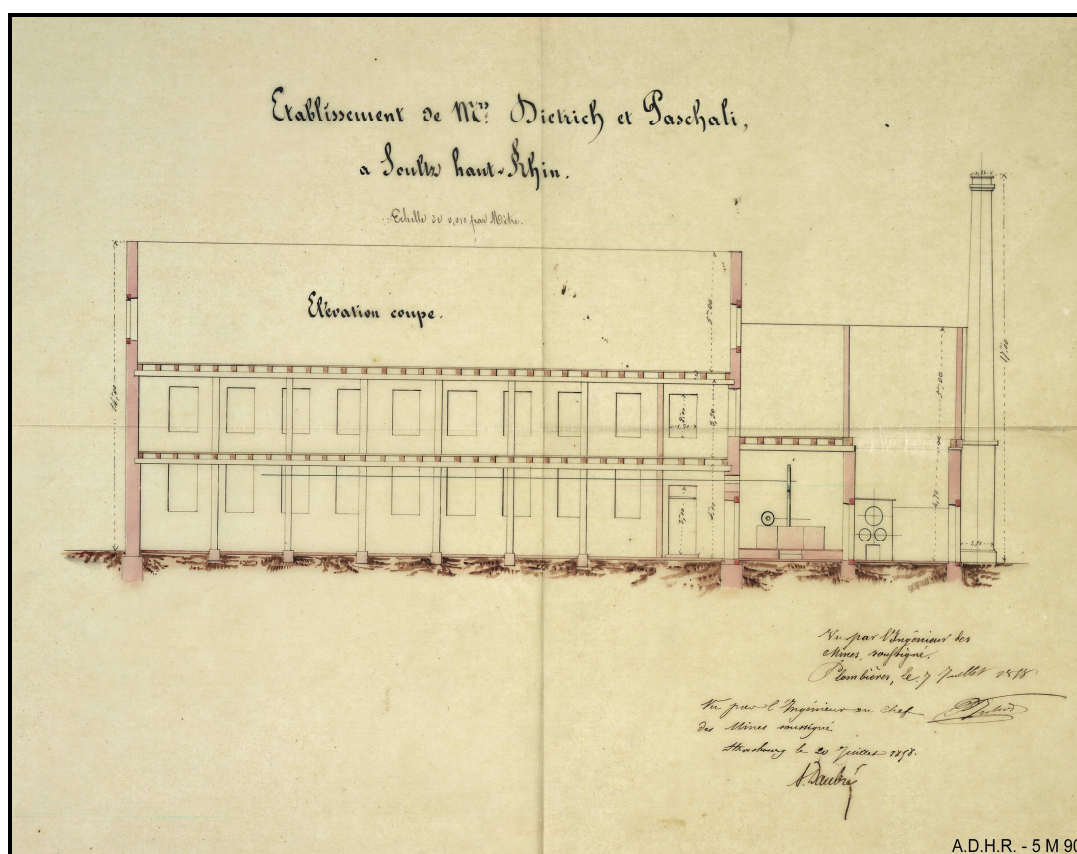 Etablissement de Mrs Dietrich et Paschali,
a Soultz haut-Rhin.
Echelle de 0,010 par Mètre.
Elévation coupe.
5m00
5m00
17,00
2,50
Vu par l'Ingénieur des
Mines, soussigné.
Plombières, le 7 Juillet 1858
Vu par l'Ingénieur en chef
des Mines soussigné
Strasbourg le 20 Juillet 1858.
A. Daubrée
A.D.H.R. - 5 M 90